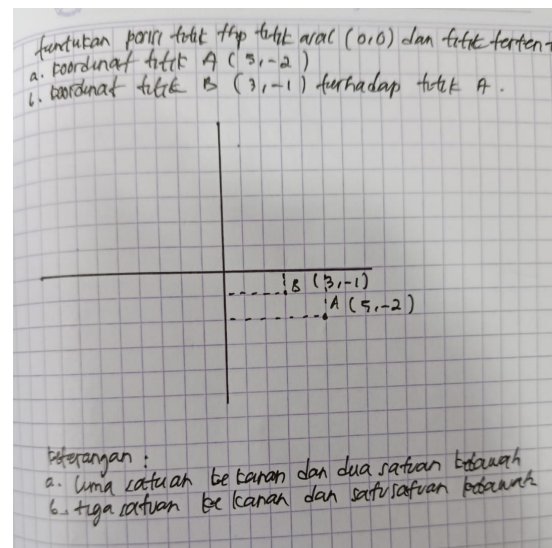 tuntukan posisi titik thp titik asal (0,0) dan titik terten
a. koordinat titik A (5,-2)
b. koordinat titik B (3,-1) terhadap titik A.
B (3,-1)
A (5,-2)
keterangan :
a. lima satuan ke kanan dan dua satuan kebawah
b. tiga satuan ke kanan dan satu satuan kebawah